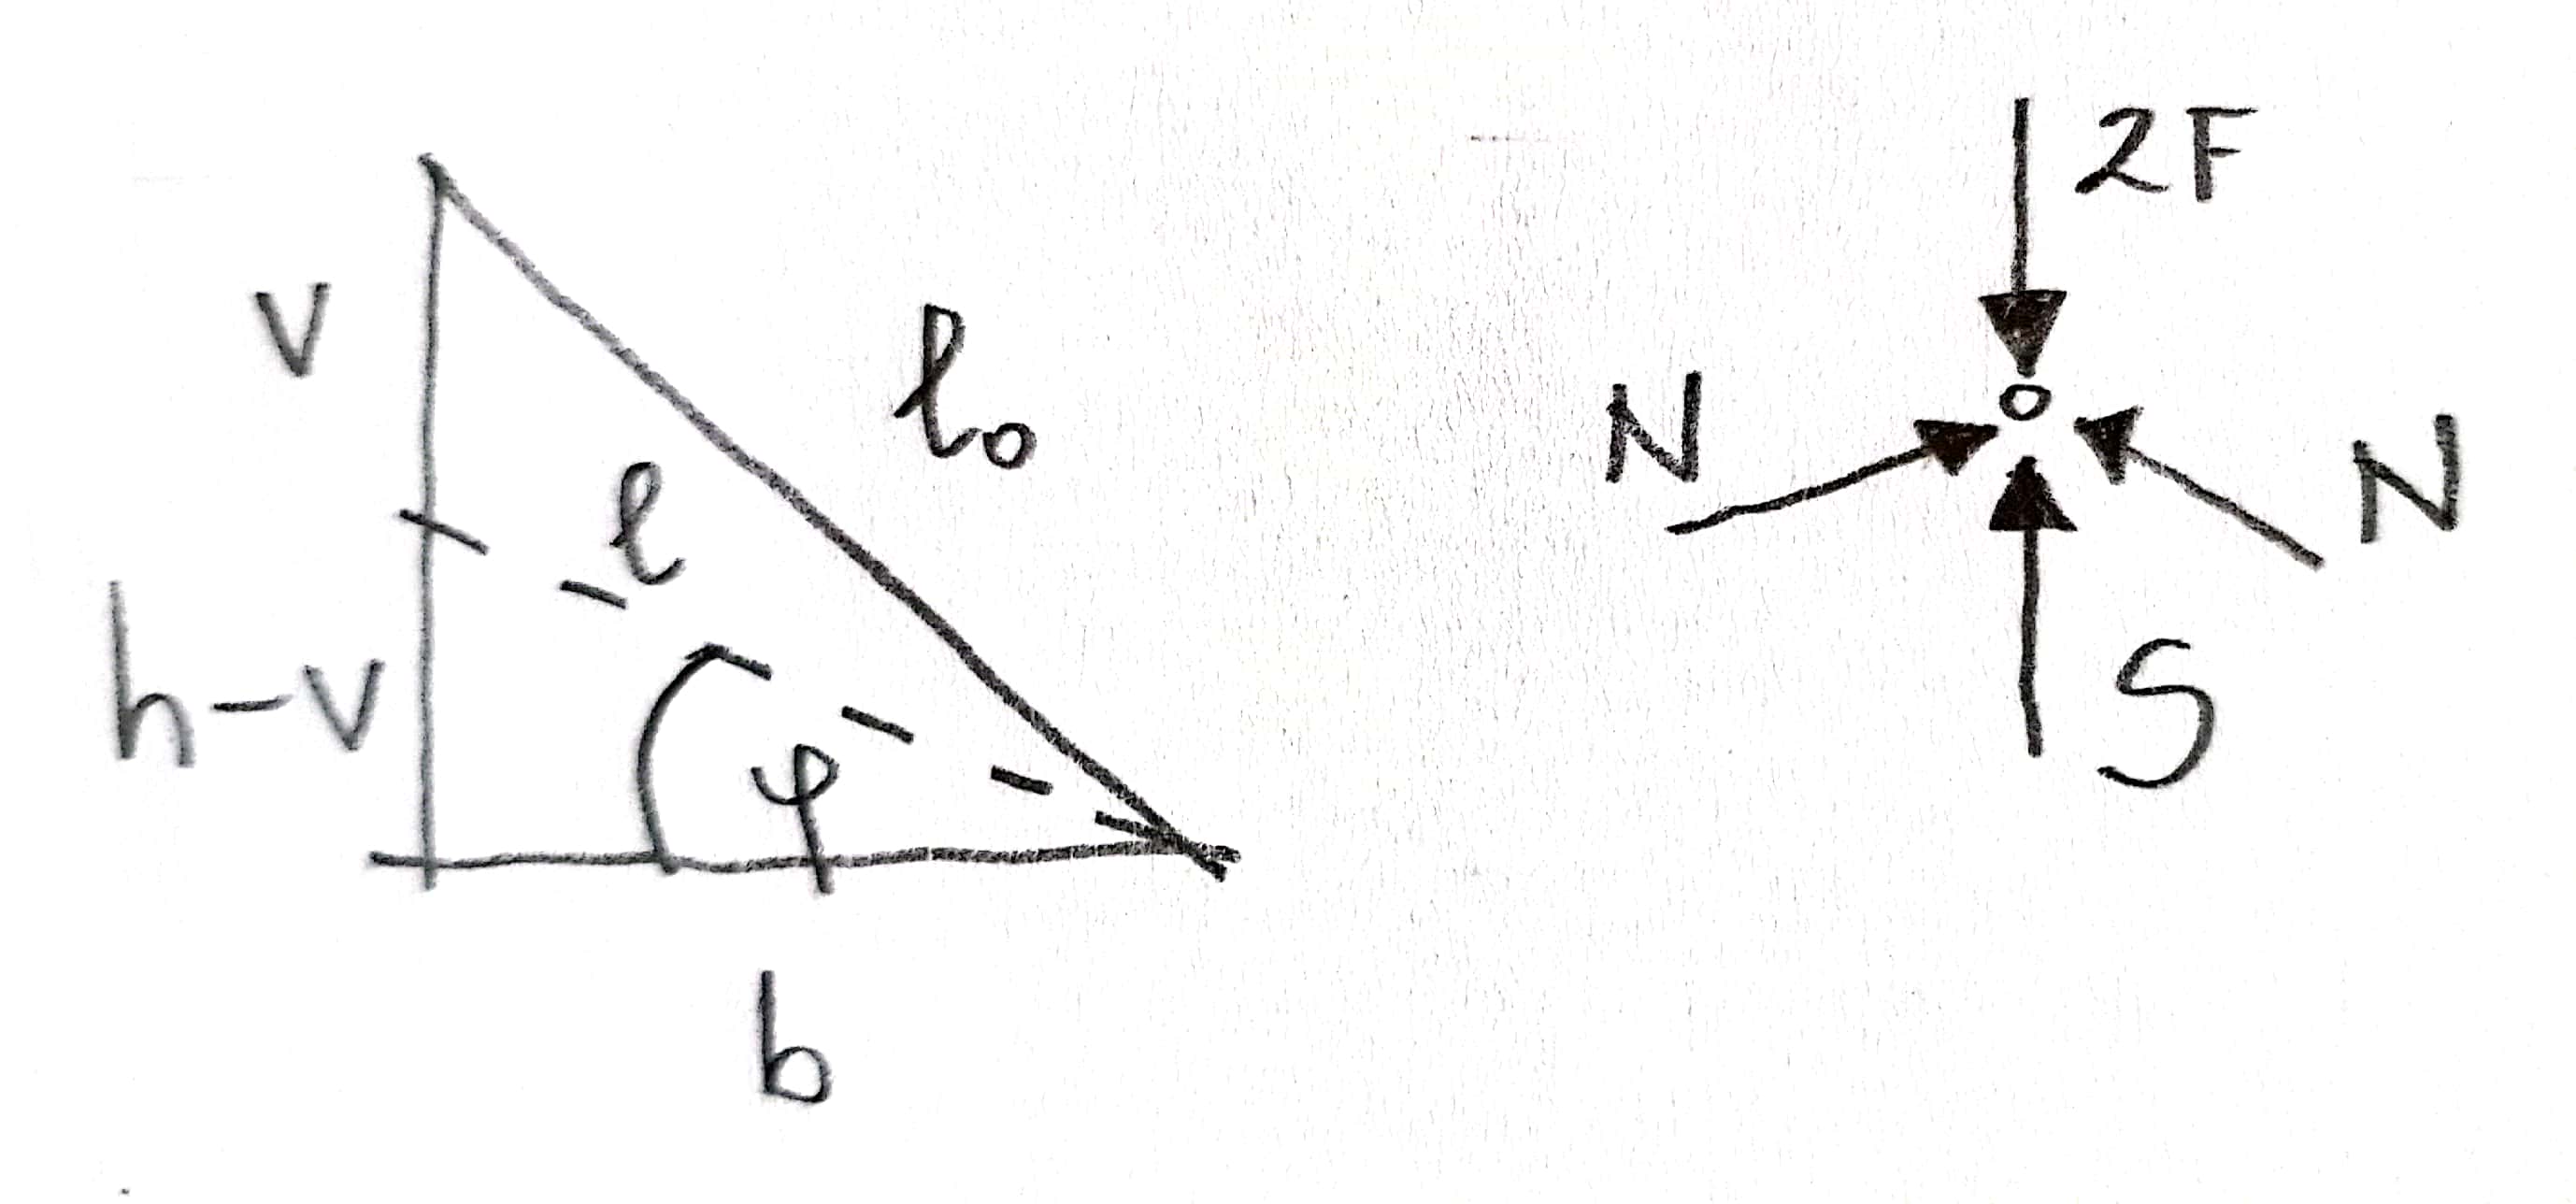 v
l₀
l
h-v
φ
b
2F
N
N
S